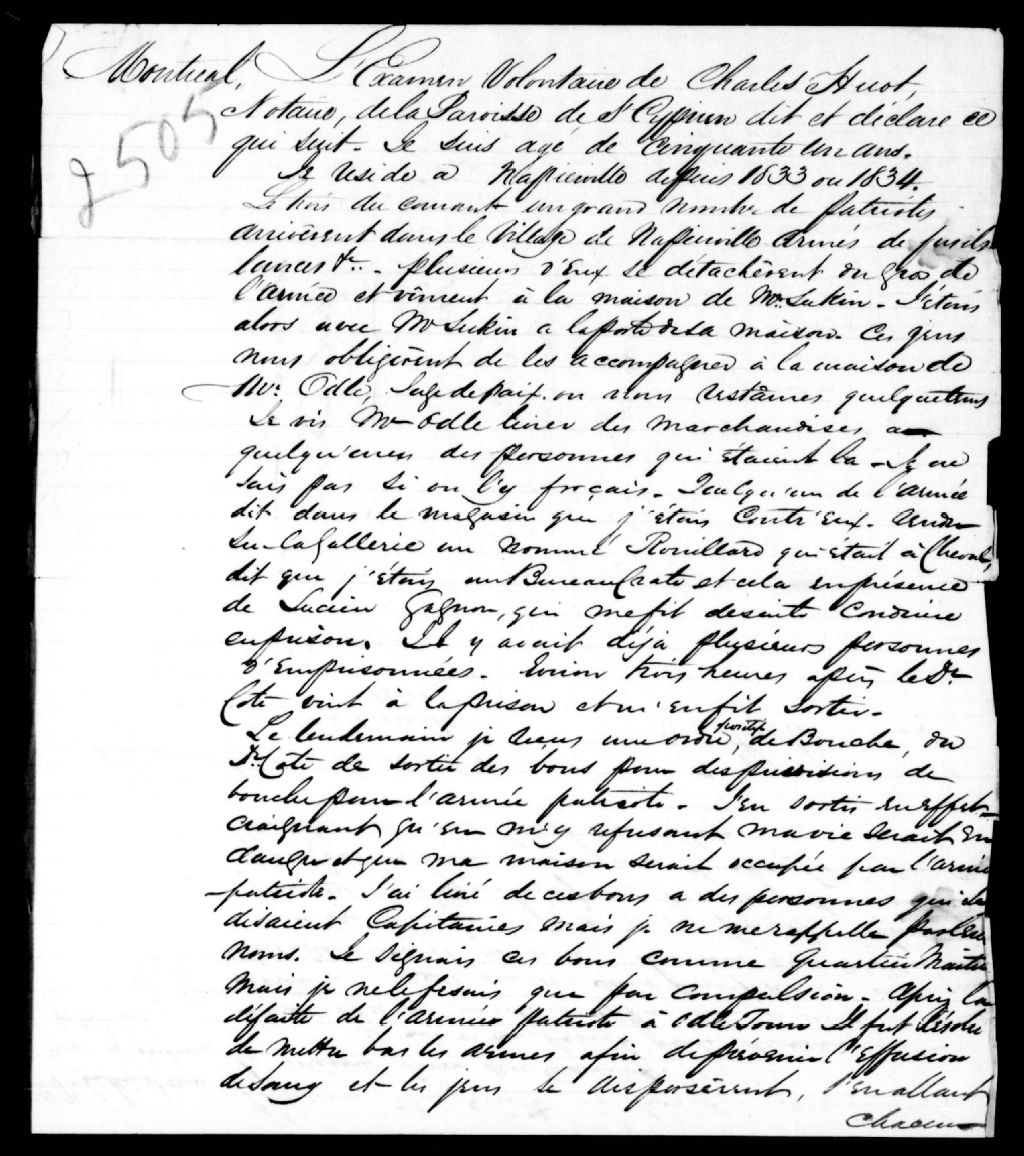 Montreal, L'Examen Volontaire de Charles Huot,
2505
Notaire, de la Paroisse de St Cyprien dit et déclare ce
qui suit. Je suis agé de Cinquante un ans.
Je reside à Napierville depuis 1833 ou 1834.
Le trois du courant un grand nombre de patriotes
arrivèrent dans le Village de Napierville armés de fusils
lances &c. plusieurs d'Eux se détachèrent du gros de
l'armée et vinrent à la maison de Mr. Lukin - J'étais
alors avec Mr Lukin a la porte de sa maison. Ces gens
nous obligèrent de les accompagner à la maison de
Mr. Odle, Juge de paix. ou nous restâmes quelquetems
Je vis Mr Odle livrer des Marchandises a
quelqu'unes des personnes qui étaient la - Je ne
sais pas si on l'y forçais. Quelqu'un de l'armée
dit dans le magasin que j'étais Contr'eux. Rendu
su la Gallerie un nommé Rouillard qui était à Cheval,
dit que j'étais un Bureaucrate et cela en présence
de Lucien Gagnon, qui me fit desuite Conduire
en prison. Il y avait déjà plusieurs personnes
d'Emprisonnées. Environ trois heures après le Dr
Cote vint à la prison et m'en fit sortir.
Le lendemain je reçus une ordre, de Bouche, du
Dr Cote de sortir des bons pour des provisions de
bouche pour l'armée patriote. J'en sortis en effet
craignant qu'en m'y refusant ma vie serait En
danger et que ma maison serait occupée par l'armée
patriote. J'ai livré de ces bons a des personnes qui se
disaient Capitaines mais je ne me rappelle pas leur
noms. Je signais ces bons comme Quartier Maitre
Mais je ne le fesais que par Compulsion. Après la
défaite de l'armée patriote à Odle Town Il fut Résolu
de mettre bas les armes afin de prévenir l'Effusion
de Sang et les gens se dispersèrent, s'en allant
Chacun